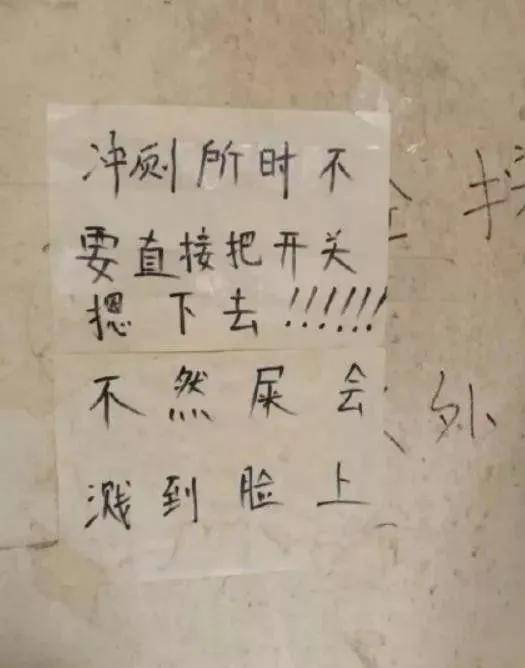 冲厕所时不
要直接把开关
摁下去!!!!!!
不然屎会
溅到脸上
外